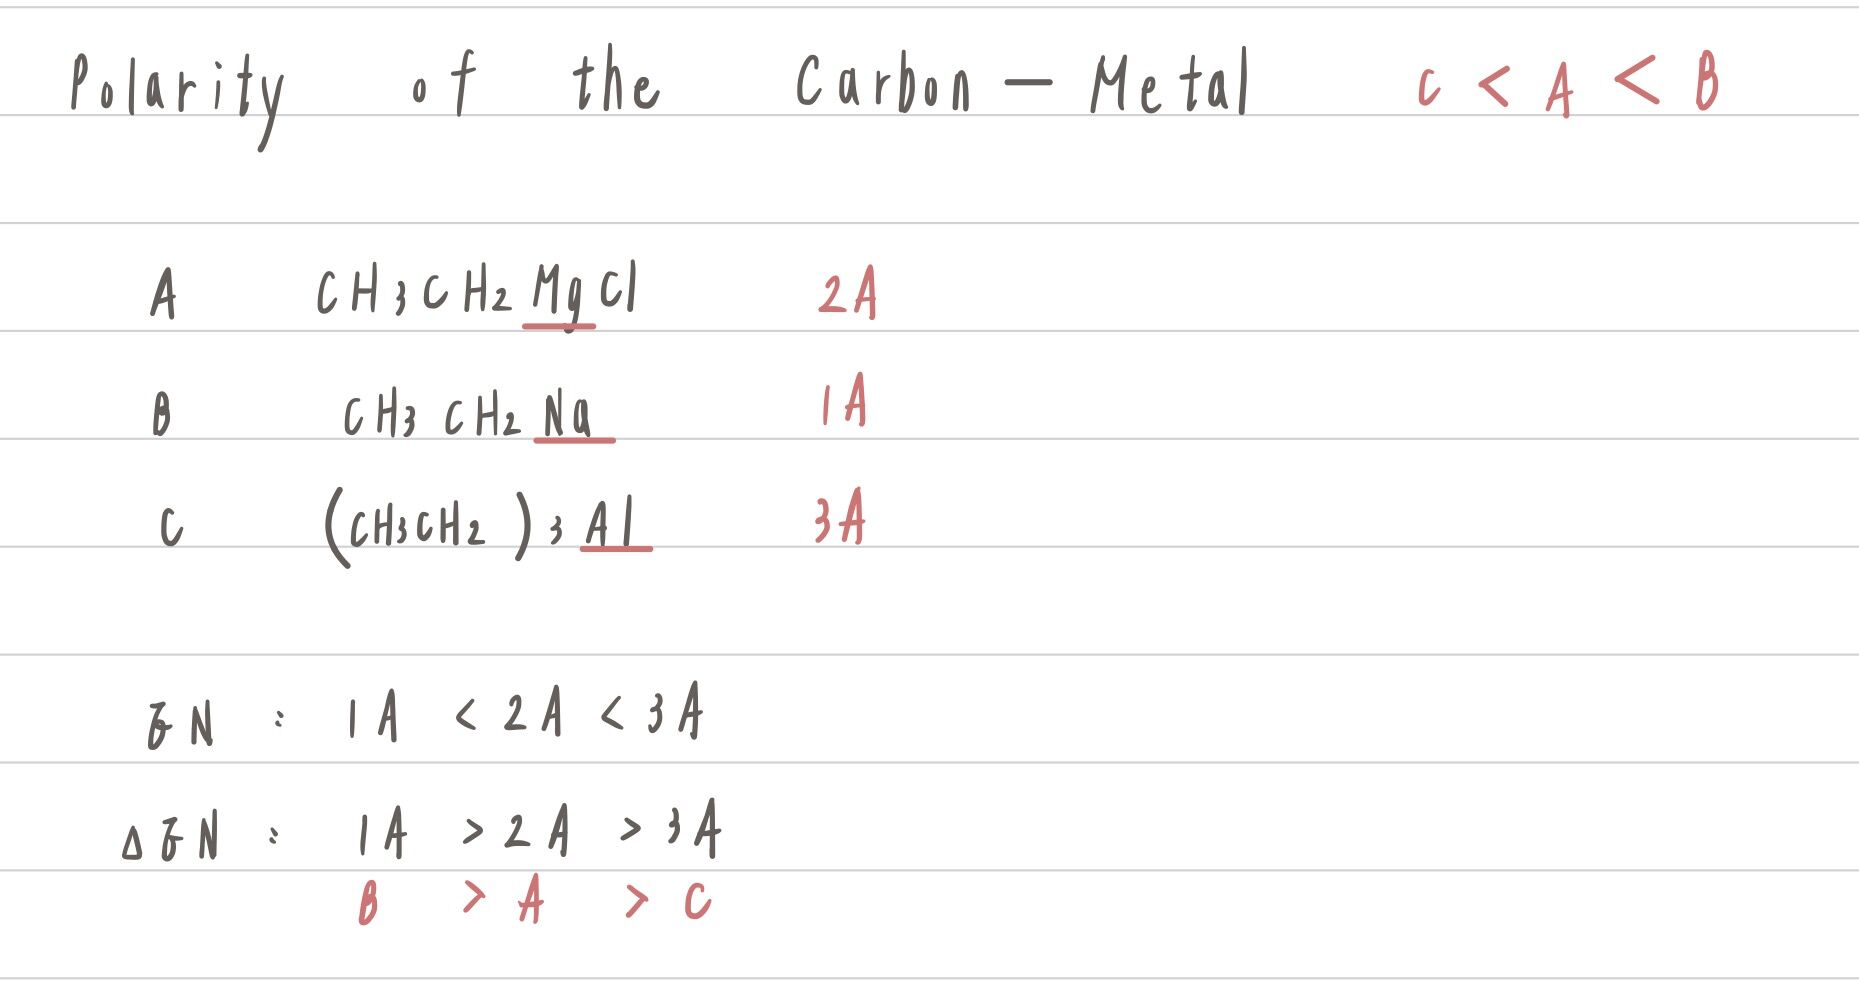 Polarity of the Carbon – Metal C < A < B
A CH3CH2MgCl 2A
B CH3CH2Na 1A
C (CH3CH2)3Al 3A
EN : 1A < 2A < 3A
ΔEN : 1A > 2A > 3A
B > A > C